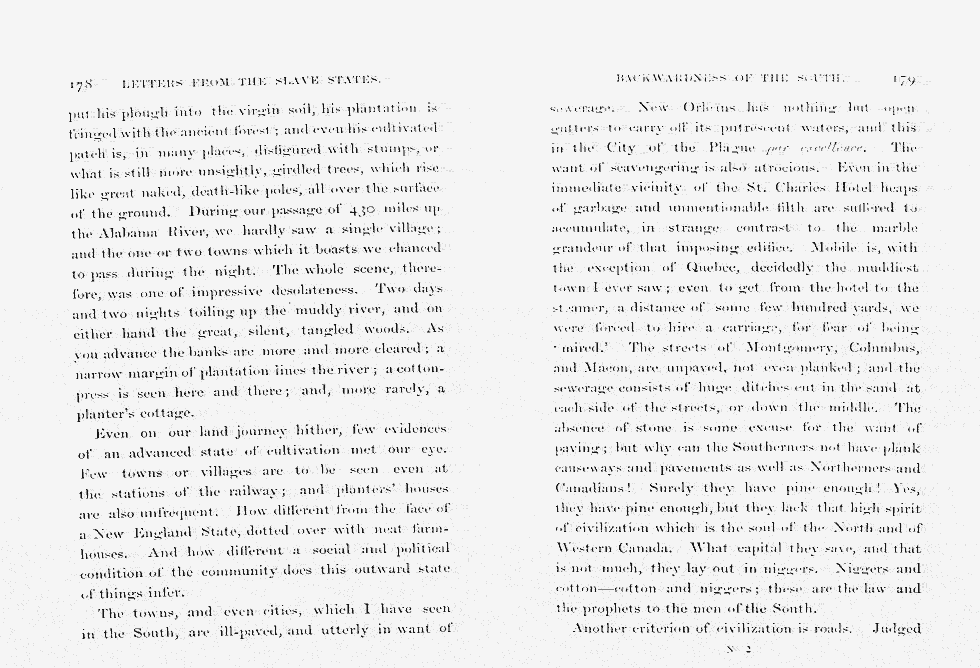 178 LETTERS FROM THE SLAVE STATES.
put his plough into the virgin soil, his plantation is
fringed with the ancient forest; and even his cultivated
patch is, in many places, disfigured with stumps, or
what is still more unsightly, girdled trees, which rise
like great naked, death-like poles, all over the surface
of the ground. During our passage of 430 miles up
the Alabama River, we hardly saw a single village;
and the one or two towns which it boasts we chanced
to pass during the night. The whole scene, there-
fore, was one of impressive desolateness. Two days
and two nights toiling up the muddy river, and on
either hand the great, silent, tangled woods. As
you advance the banks are more and more cleared; a
narrow margin of plantation lines the river; a cotton-
press is seen here and there; and, more rarely, a
planter's cottage.
Even on our land journey hither, few evidences
of an advanced state of cultivation met our eye.
Few towns or villages are to be seen even at
the stations of the railway; and planters' houses
are also unfrequent. How different from the face of
a New England State, dotted over with neat farm-
houses. And how different a social and political
condition of the community does this outward state
of things infer.
The towns, and even cities, which I have seen
in the South, are ill-paved, and utterly in want of
BACKWARDNESS OF THE SOUTH. 179
sewerage. New Orleans has nothing but open
gutters to carry off its putrescent waters, and this
in the City of the Plague par excellence. The
want of scavengering is also atrocious. Even in the
immediate vicinity of the St. Charles Hotel heaps
of garbage and unmentionable filth are suffered to
accumulate, in strange contrast to the marble
grandeur of that imposing edifice. Mobile is, with
the exception of Quebec, decidedly the muddiest
town I ever saw; even to get from the hotel to the
steamer, a distance of some few hundred yards, we
were forced to hire a carriage, for fear of being
'mired.' The streets of Montgomery, Columbus,
and Macon, are unpaved, not even planked; and the
sewerage consists of huge ditches cut in the sand at
each side of the streets, or down the middle. The
absence of stone is some excuse for the want of
paving; but why can the Southerners not have plank
causeways and pavements as well as Northerners and
Canadians! Surely they have pine enough! Yes,
they have pine enough, but they lack that high spirit
of civilization which is the soul of the North and of
Western Canada. What capital they save, and that
is not much, they lay out in niggers. Niggers and
cotton—cotton and niggers; these are the law and
the prophets to the men of the South.
Another criterion of civilization is roads. Judged
N 2